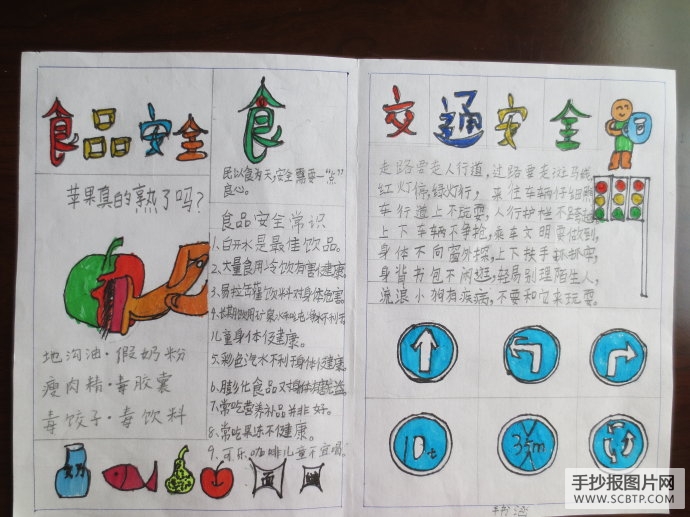 食品安全
苹果真的熟了吗？
地沟油·假奶粉
瘦肉精·毒胶囊
毒饺子·毒饮料
食
民以食为天，安全需要一“点”
良心。
食品安全常识
1、白开水是最佳饮品。
2、大量食用冷饮有害健康
3、易拉罐饮料对身体危害
儿童身体健康。
5、彩色汽水不利于身体健康、
6、膨化食品对身体
7、常吃营养补品并非好。
8、常吃果冻不健康。
9、可乐、咖啡儿童不宜喝、
交通安全
走路要走人行道，过路要走斑马线，
红灯停，绿灯行，来往车辆仔细瞧
车行道上不玩耍，人行护栏不跨越
上下车辆不争抢，乘车文明要做到，
身体不向窗外探，上下扶手抓牢，
身背书包不闲逛，轻易别理陌生人，
流浪小狗有疾病，不要和它来玩耍。
10t
3.5m
手抄报图片网
WWW.SCBTP.COM